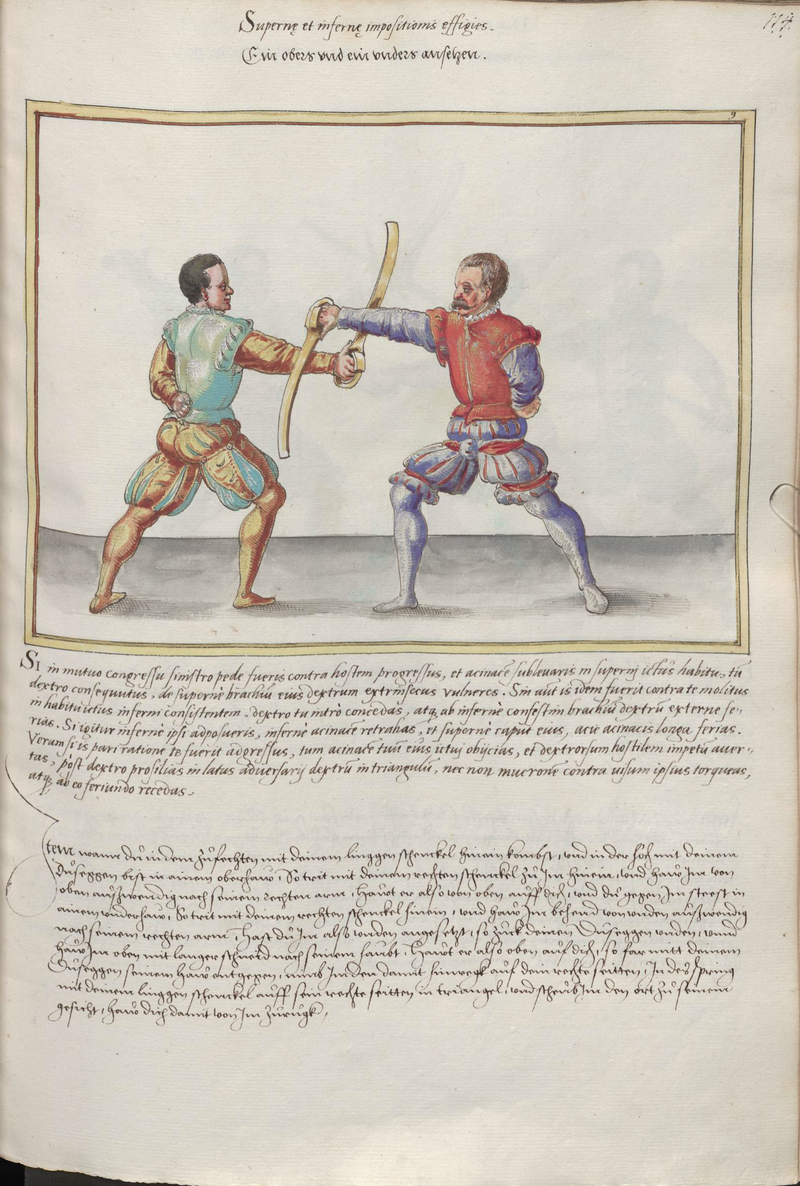 Supernę et infernę impositionis effigies.
Ein obers vnd ein vnders ansetzen.
114.
9
SI in mutuo congressu sinistro pede fueris contra hostem progressus, et acinacē sublevaris in superni ictus habitu, tū
dextro consequutus, de supernè brachiū eius dextrum extrinsecus vulneres. Sin aūt is idem fuerit contra te molitus
in habitu ictus inferni consistentem, dextro tu intrò concedas, atq. ab infernè confestim brachiū dextrū externe fe-
rias. Si igitur infernè ipsi adposueris, infernè acinacē retrahas, et supernè caput eius, acie acinacis longa ferias.
Verum si is pari ratione te fuerit adgressus, tum acinacē tuū eius ictuj obijcias, et dextrorsum hostilem impetū auer-
tas, post dextro prosilias in latus adversarij dextrū in triangulū, nec non mucronē contra visum ipsius torqueas,
atq. ab eo feriundo recedas.
Item wann dū in dem Zūfechten mit deinem linggen schenckel hinein kombst, vnd in der höch mit deinem
Dūseggen bist in ainem oberhaw, So trit mit deinem rechten schenckel zū Im hinein, vnnd haw Im von
oben aūſzwendig nach seinem rechten arm, Hawt er also von oben aūff dich, vnd dū gegen Im steest in
ainem vnderhaw, So trit mit deinem rechten schenckel hinein, vnnd haw Im behend von vnden aūſzwendig
nach seinem rechten arm, Hast dū Im also vnden angesetzt, so Zūck deinen Dūseggen vnden, vnnd
haw Im oben mit langer schneid nach seinem haūbt, Hawt er also oben aūf dich, so far mitt deinem
Dūseggen seinem haw entgegen, nimb Im den damit hinwegk aūf dein rechte seitten, In des spring
mit deinem linggen schenckel aūff sein rechte seitten in triangel, vnd scheūb Im den ort zū seinem
gesicht, haw dich damit von Im zūrūgk.